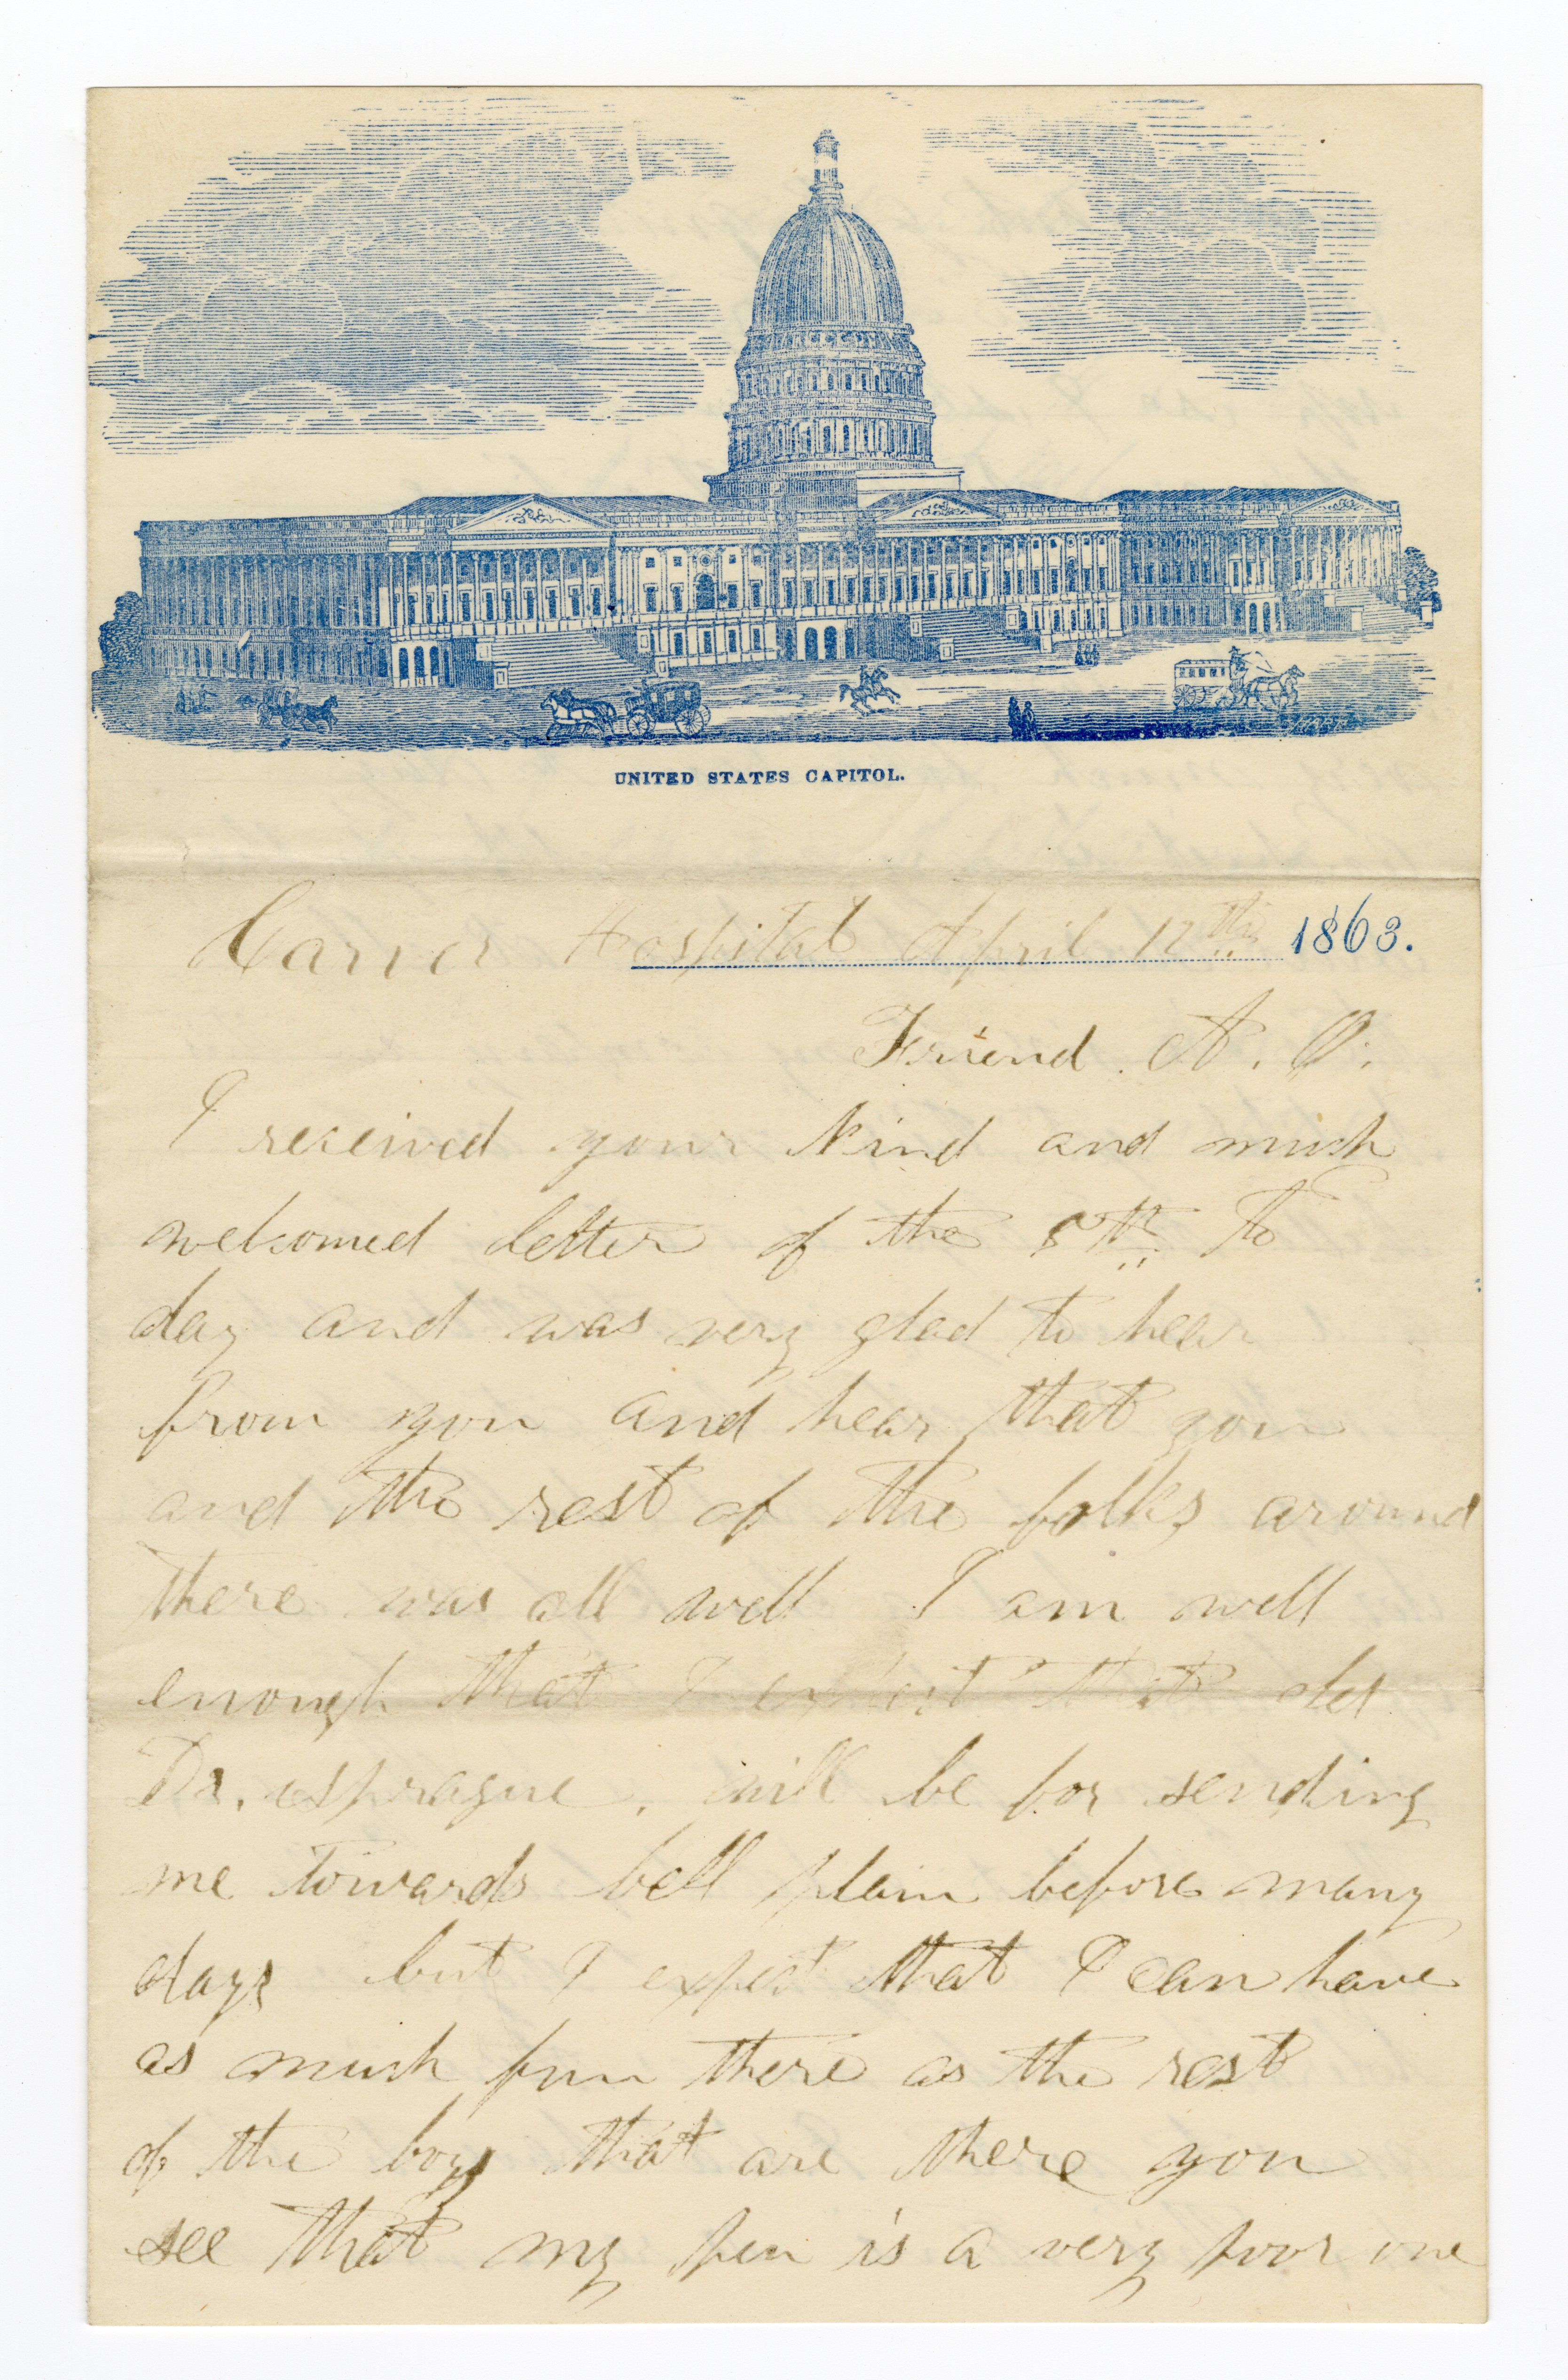 UNITED STATES CAPITOL.
Carver Hospital April 12th 1863.
Friend. A. O.
I received your kind and much
welcomed letter of the 8th To
day and was very glad to hear
from you and hear that you
and the rest of the folks around
there was all well I am well
enough that I expect that old
Dr. Sprague. will be for sending
me towards bell plain before many
days but I expect that I can have
as much fun there as the rest
of the boys that are there you
see that my pen is a very poor one